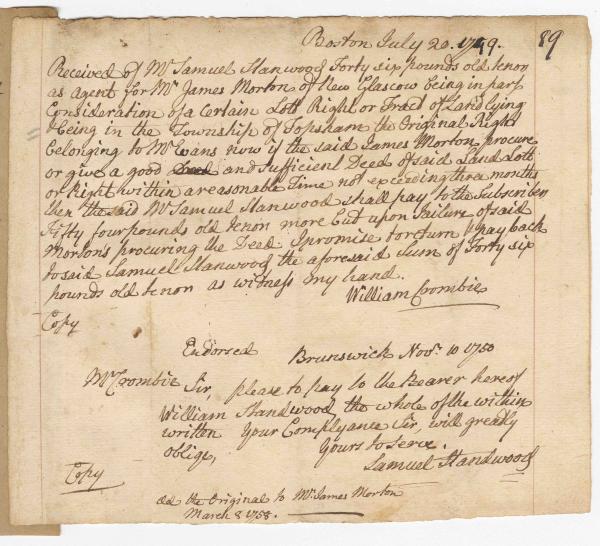 Boston July 20. 1749. 89
Received of Mr Samuel Stanwood Forty six pounds old tenor
as agent for Mr James Morton of New Glascow being in part
Consideration of a Certain Lott Right or Tract of Land lying
& being in the Township of Topsham the Original Right
belonging to Mr Evans now if the said James Morton procure
or give a good Deed and Sufficient Deed of said Land Lott
or Right within a reasonable Time not exceeding three months
then the said Mr Samuel Stanwood shall pay to the Subscriber
Fifty four pounds old tenor more but upon Failure of said
Morton's procuring the Deed I promise to return & pay back
to said Samuel Stanwood the aforesaid Sum of Forty six
pounds old tenor as witness my hand.
William Crombie
Copy
Endorsed Brunswick Novr. 10 1750
Mr Crombie Sir, please to pay to the Bearer hereof
William Standwood, the whole of the within
written Your Complyance Sir, will greatly
oblige, Yours to Serve.
Samuel Standwood
Copy
dd the Original to Mr. James Morton
March 8 1758.